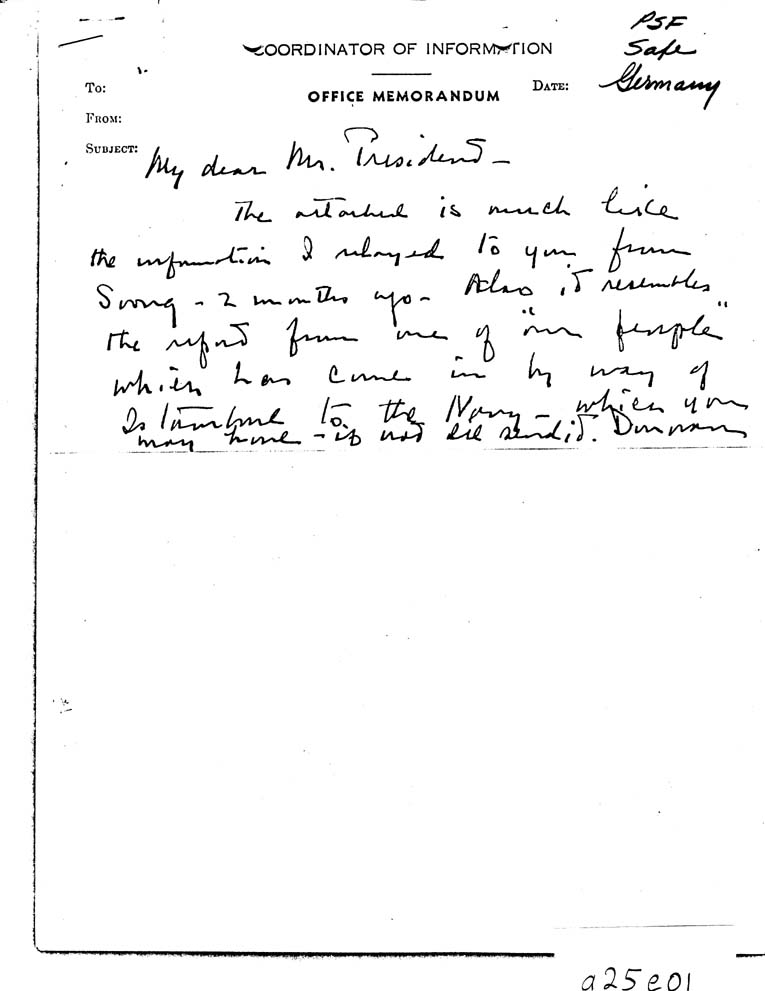 PSF
Safe
Germany
COORDINATOR OF INFORMATION
OFFICE MEMORANDUM
To:
DATE:
FROM:
SUBJECT:
My dear Mr. President -
The attached is much like
the information I relayed to you from
Soong - 2 months ago - Also it resembles
the report from one of "our people"
which has come in by way of
Istanbul to the Navy - which you
may have - if not I'll send it. Donovan
a25e01